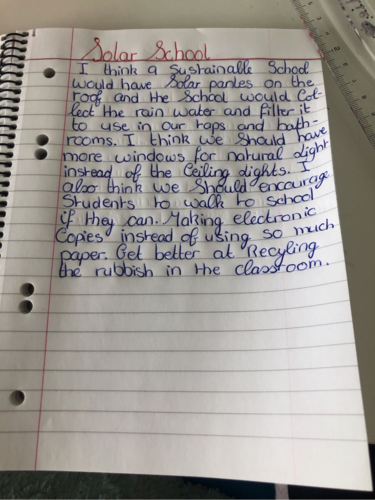 Solar School
I think a Sustainable School
would have Solar panles on the
roof and the School would Col-
lect the rain water and filter it
to use in our taps and bath-
rooms. I think we Should have
more windows for natural light
instead of the Ceiling lights. I
also think we Should encourage
Students to walk to school
if they can. Making electronic
Copies instead of using so much
paper. Get better at Recyling
the rubbish in the classroom.